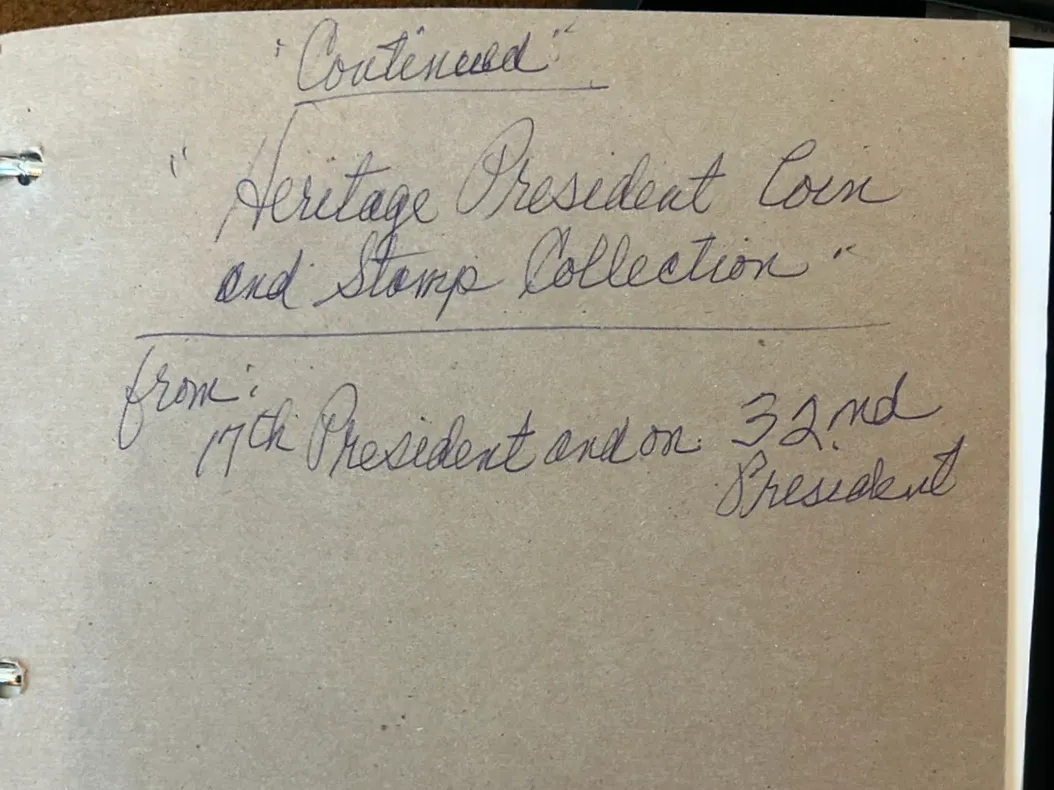 "Continued"
"Heritage President Coin
and Stamp Collection"
from:
17th President and on 32nd
President